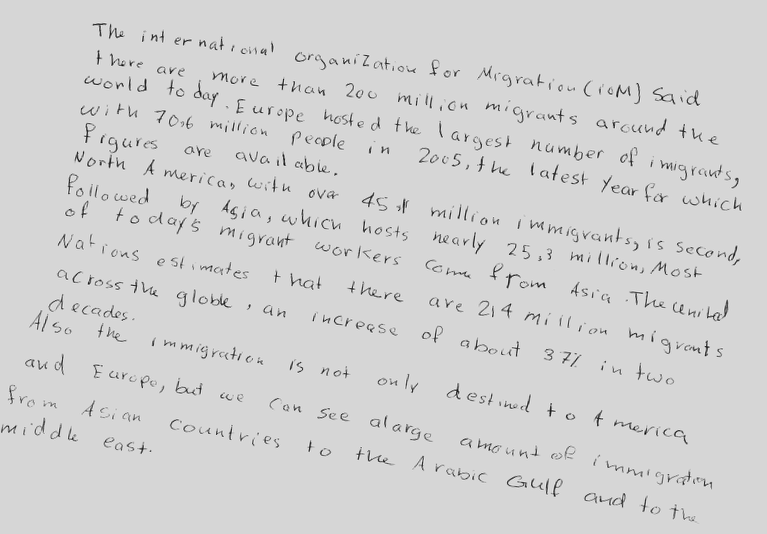 The international organization for Migration (ioM) said
there are more than 200 million migrants around the
world today. Europe hosted the largest number of imigrants,
with 70.6 million people in 2005, the latest year for which
figures are available.
North America, with over 45.1 million immigrants, is second,
followed by Asia, which hosts nearly 25,3 million, Most
of today's migrant workers come from Asia. The united
Nations estimates that there are 214 million migrants
across the globle, an increase of about 37% in two
decades.
Also the immigration is not only destined to America
and Europe, but we can see alarge amount of immigration
from Asian countries to the Arabic Gulf and to the
middle east.